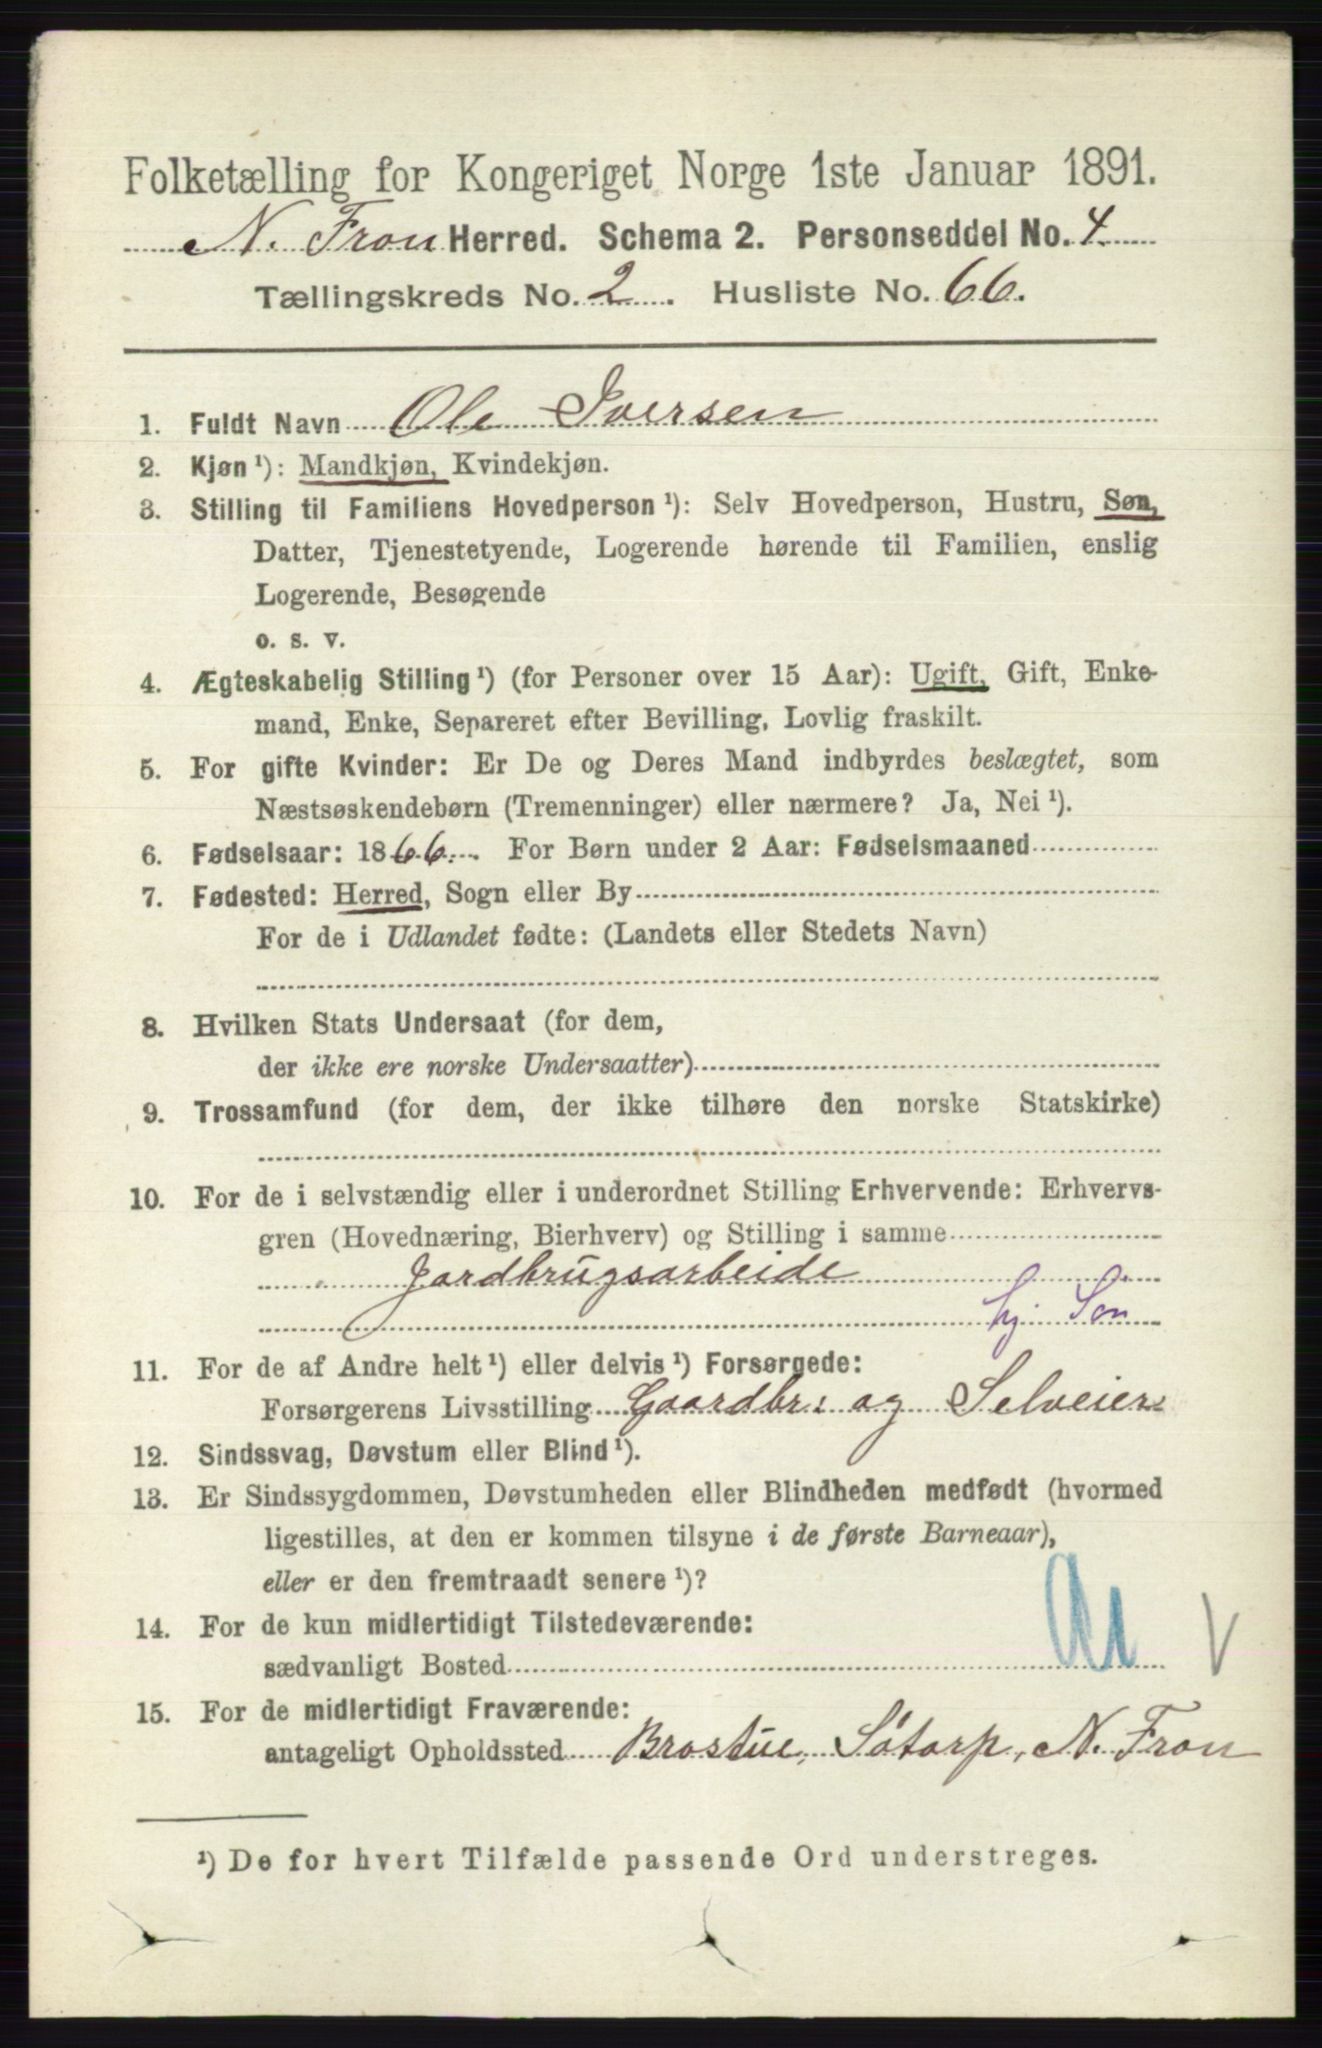 Folketælling for Kongeriget Norge 1ste Januar 1891.
N. Fron Herred. Schema 2. Personseddel No. 4.
Tællingskreds No. 2. Husliste No. 66.
1. Fuldt Navn Ole Iversen
2. Kjøn ¹): Mandkjøn, Kvindekjøn.
3. Stilling til Familiens Hovedperson ¹): Selv Hovedperson, Hustru, Søn,
Datter, Tjenestetyende, Logerende hørende til Familien, enslig
Logerende, Besøgende
o. s. v.
4. Ægteskabelig Stilling ¹) (for Personer over 15 Aar): Ugift, Gift, Enke-
mand, Enke, Separeret efter Bevilling, Lovlig fraskilt.
5. For gifte Kvinder: Er De og Deres Mand indbyrdes beslægtet, som
Næstsøskendebørn (Tremenninger) eller nærmere? Ja, Nei ¹).
6. Fødselsaar: 1866. For Børn under 2 Aar: Fødselsmaaned
7. Fødested: Herred, Sogn eller By
For de i Udlandet fødte: (Landets eller Stedets Navn)
8. Hvilken Stats Undersaat (for dem,
der ikke ere norske Undersaatter)
9. Trossamfund (for dem, der ikke tilhøre den norske Statskirke)
10. For de i selvstændig eller i underordnet Stilling Erhvervende: Erhvervs-
gren (Hovednæring, Bierhverv) og Stilling i samme
Jordbrugsarbeide
hj. Søn
11. For de af Andre helt ¹) eller delvis ¹) Forsørgede:
Forsørgerens Livsstilling Gaardbr: og Selveier
12. Sindssvag, Døvstum eller Blind ¹).
13. Er Sindssygdommen, Døvstumheden eller Blindheden medfødt (hvormed
ligestilles, at den er kommen tilsyne i de første Barneaar),
eller er den fremtraadt senere ¹)?
14. For de kun midlertidigt Tilstedeværende:
sædvanligt Bosted
15. For de midlertidigt Fraværende:
antageligt Opholdssted Brostue, Sötorp, N. Fron
¹) De for hvert Tilfælde passende Ord understreges.